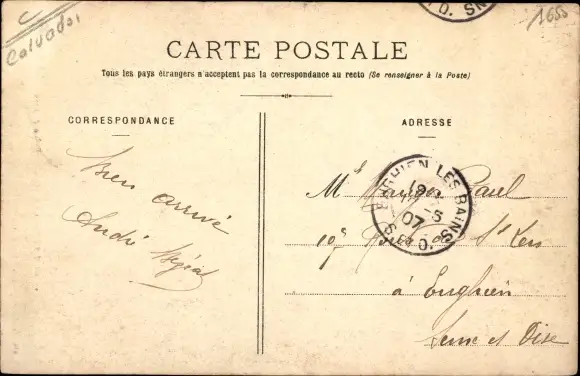 C
Calvados
1655
CARTE POSTALE
Tous les pays étrangers n'acceptent pas la correspondance au recto (Se renseigner à la Poste)
CORRESPONDANCE
ADRESSE
Bien arrivé
André
Mr Paul
ENGHIEN LES BAINS
S. & O.
07
Rue de St
à Enghien
Seine et Oise